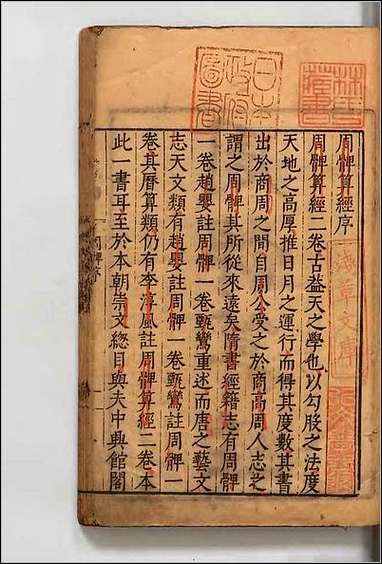 周髀算經序
周髀算經二卷古蓋天之學也以勾股之法度
天地之高厚推日月之運行而得其度數其書
出於商周之間自周公受之於商高周人志之
謂之周髀其所從來遠矣隋書經籍志有周髀
一卷趙嬰註周髀一卷甄鸞重述而唐之藝文
志天文類有趙嬰註周髀一卷甄鸞註周髀一
卷其曆算類仍有李淳風註周髀算經二卷本
此一書耳至於本朝崇文總目與夫中興館閣
周髀序
日本
政府
圖書
林氏
藏書
淺草文庫